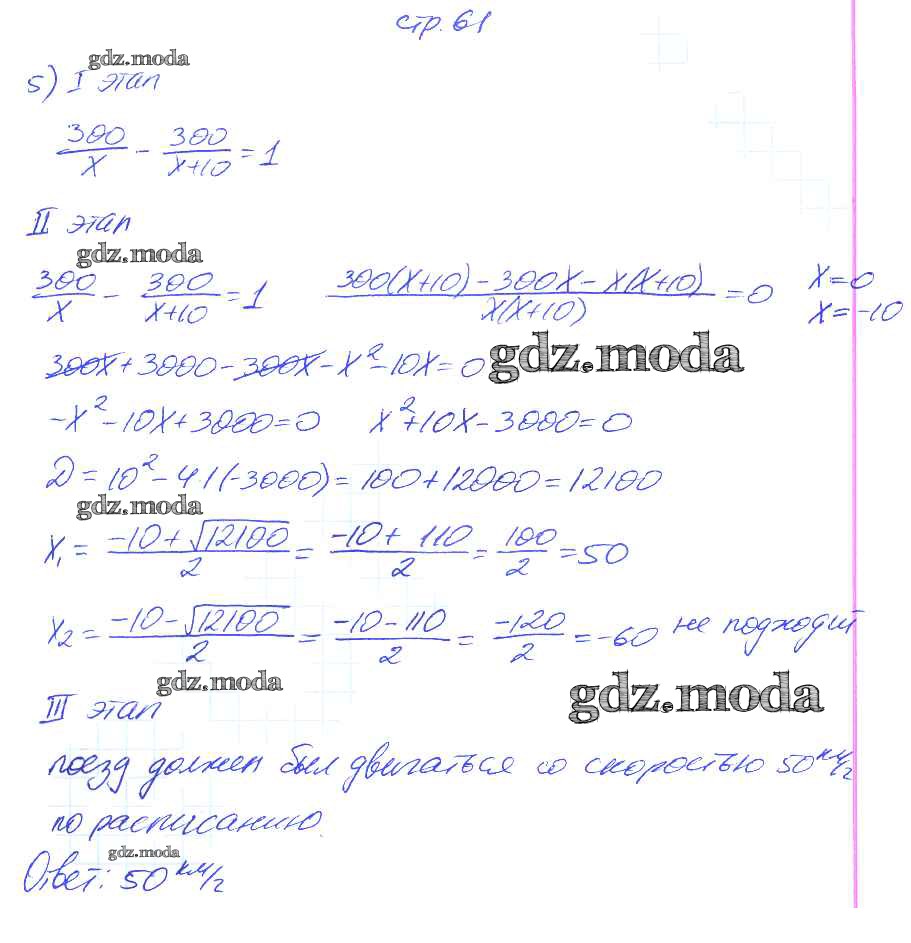 стр. 61
gdz.moda
5) I этап
300/x - 300/(x+10) = 1
II этап
gdz.moda
300/x - 300/(x+10) = 1   (300(x+10) - 300x - x(x+10))/(x(x+10)) = 0   x=0
x=-10
300x + 3000 - 300x - x² - 10x = 0 gdz.moda
-x² - 10x + 3000 = 0   x² + 10x - 3000 = 0
D = 10² - 4·1(-3000) = 100 + 12000 = 12100
gdz.moda
x₁ = (-10 + √12100)/2 = (-10 + 110)/2 = 100/2 = 50
x₂ = (-10 - √12100)/2 = (-10 - 110)/2 = -120/2 = -60 не подходит
gdz.moda gdz.moda
III этап
поезд должен был двигаться со скоростью 50 км/ч
по расписанию.
gdz.moda
Ответ: 50 км/ч